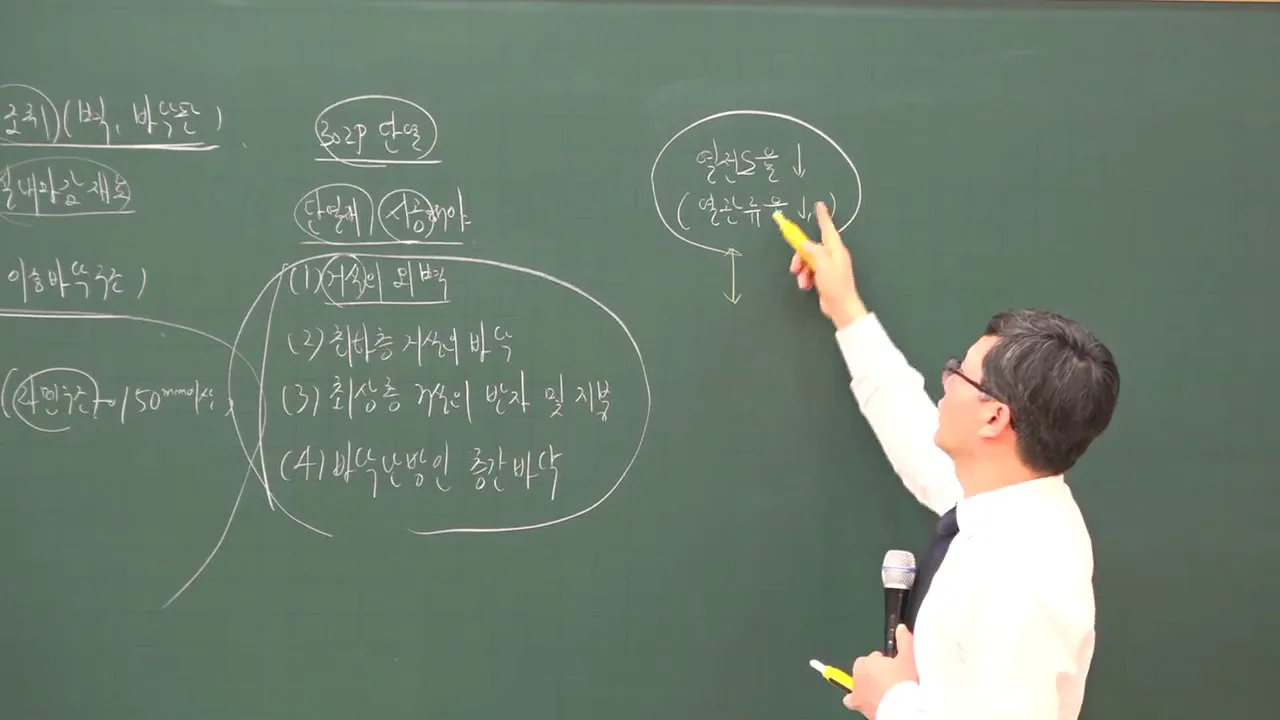 (벽, 바닥판)
실내마감재료
이중바닥구조)
(라면구조 → 150mm이상,
302P 단열
단열재 사용해야
(1) 거실의 외벽
(2) 최하층 거실의 바닥
(3) 최상층 거실의 반자 및 지붕
(4) 바닥난방인 층간바닥
열전도율 ↓
(열관류율 ↓, )